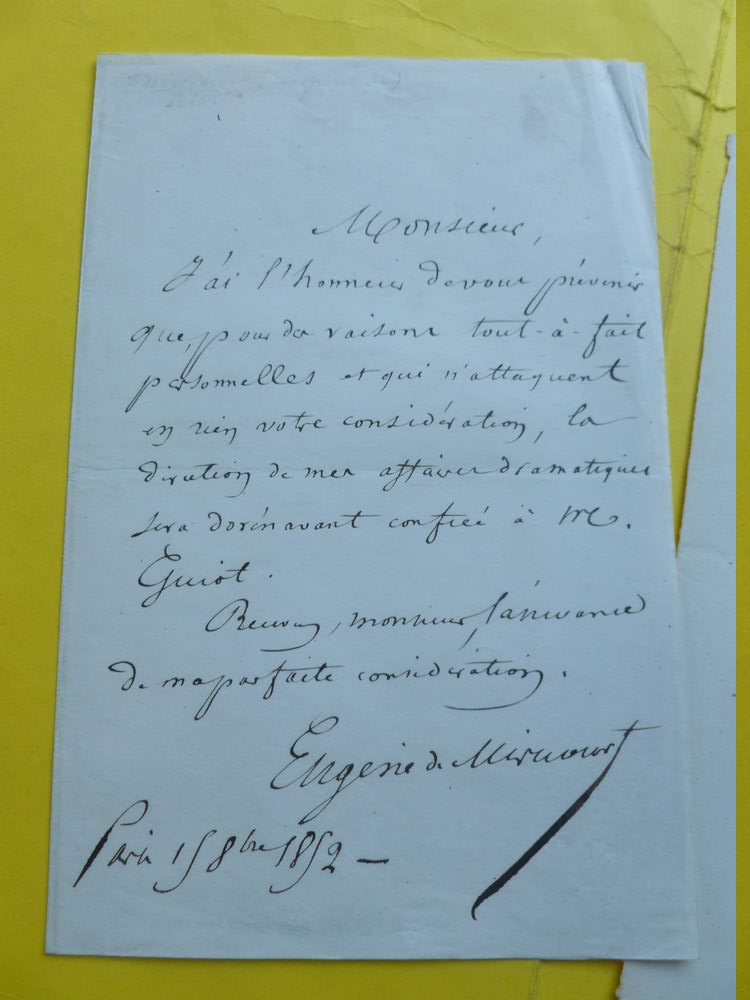 Monsieur,
J'ai l'honneur de vous prévenir
que, pour des raisons tout-à-fait
personnelles et qui n'attaquent
en rien votre considération, la
direction de mes affaires dramatiques
sera dorénavant confiée à M.
Guiot.
Recevez, monsieur, l'assurance
de ma parfaite considération.
Eugène de Mirecourt
Paris 15 8bre 1852 —